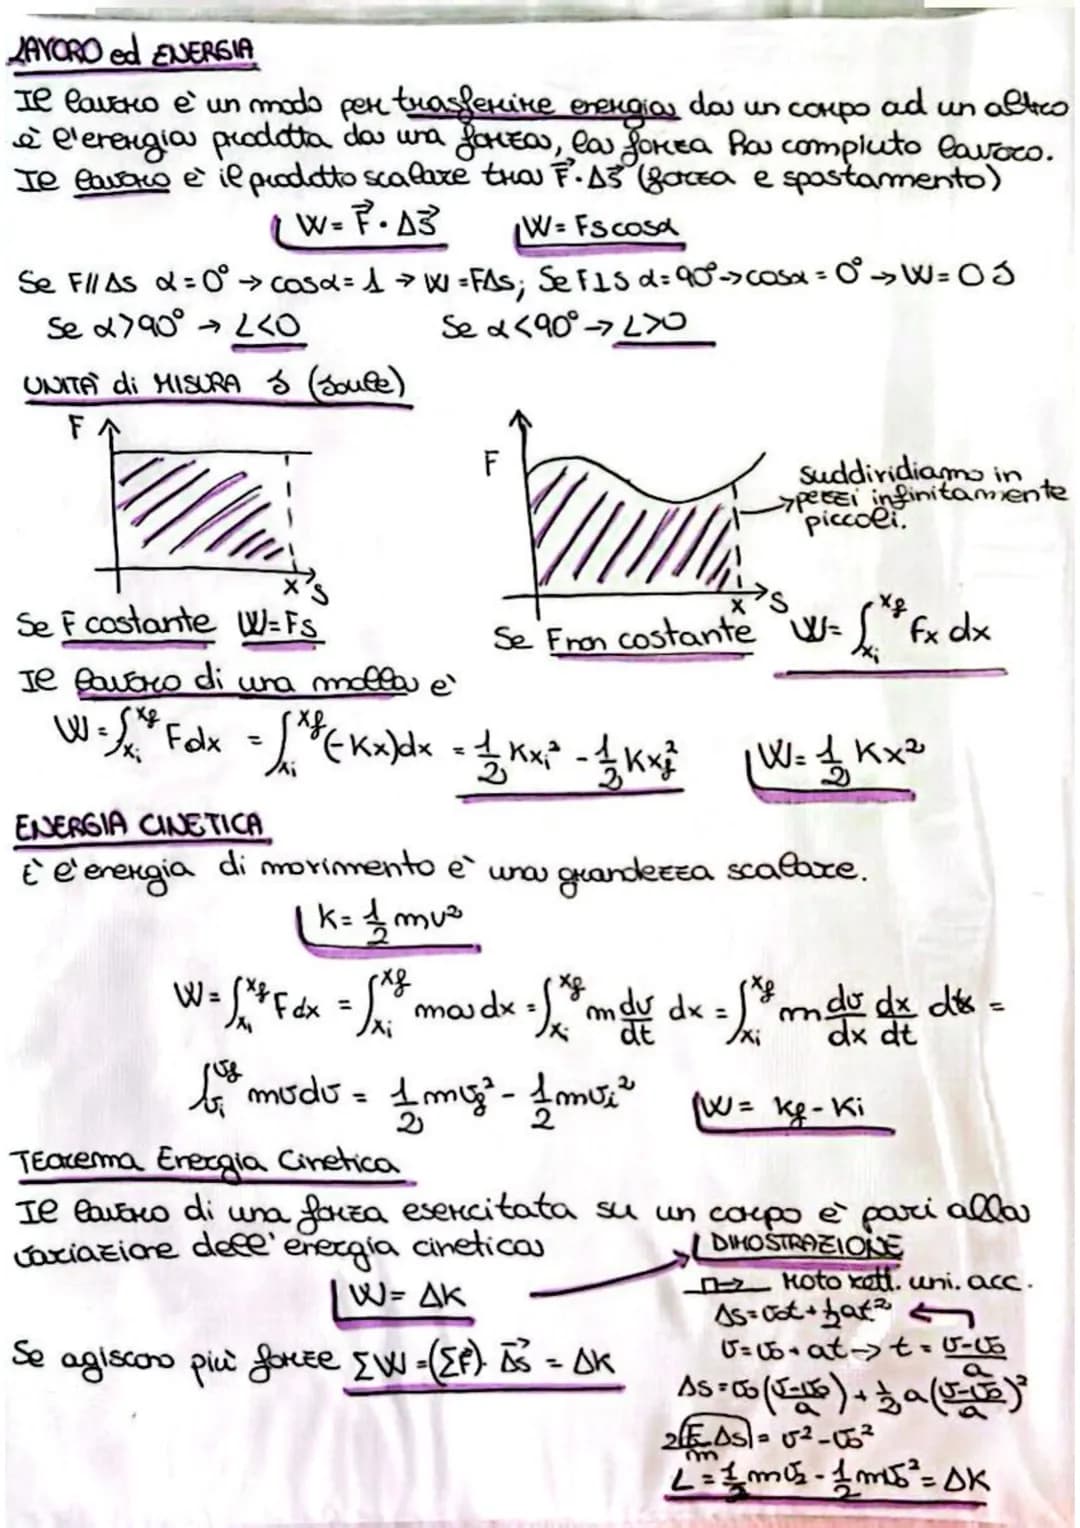 LAVORO ed ENERGIA
Il lavoro è un modo per trasferire energia da un corpo ad un altro
è l'energia prodotta da una forza, la forza ha compiuto lavoro.
Il lavoro è il prodotto scalare tra F⃗·Δs⃗ (forza e spostamento)
W = F⃗·Δs⃗   W = Fs cosα
Se F∥Δs α=0° → cosα=1 → W=FΔs; Se F⊥S α=90° → cosα=0° → W=0 J
Se α>90° → L<0   Se α<90° → L>0
UNITÀ di MISURA J (Joule)
F
F
Suddividiamo in
→pezzi infinitamente
piccoli.
x s
x s
Se F costante W=Fs
Se F non costante W = ∫_{xi}^{xf} Fx dx
Il lavoro di una molla è
W = ∫_{xi}^{xf} Fdx = ∫_{xi}^{xf} (-Kx)dx = 1/2 Kxi² - 1/2 Kxf²   W = 1/2 Kx²
ENERGIA CINETICA
È l'energia di movimento è una grandezza scalare.
K = 1/2 mv²
W = ∫_{xi}^{xf} Fdx = ∫_{xi}^{xf} ma dx = ∫_{xi}^{xf} m dv/dt dx = ∫_{xi}^{xf} m dv/dx dx/dt dx =
∫_{vi}^{vf} mvdv = 1/2 mvf² - 1/2 mvi²   W = Kf - Ki
TEorema Energia Cinetica
Il lavoro di una forza esercitata su un corpo è pari alla
variazione dell'energia cinetica
W = ΔK
Se agiscono più forze ΣW = (ΣF⃗)·Δs⃗ = ΔK
DIMOSTRAZIONE
Moto rett. uni. acc.
Δs = v0t + 1/2 at²
v = v0 + at → t = v-v0/a
Δs = v0(v-v0/a) + 1/2 a(v-v0/a)²
2 F/m Δs = v² - v0²
L = 1/2 mv² - 1/2 mv0² = ΔK